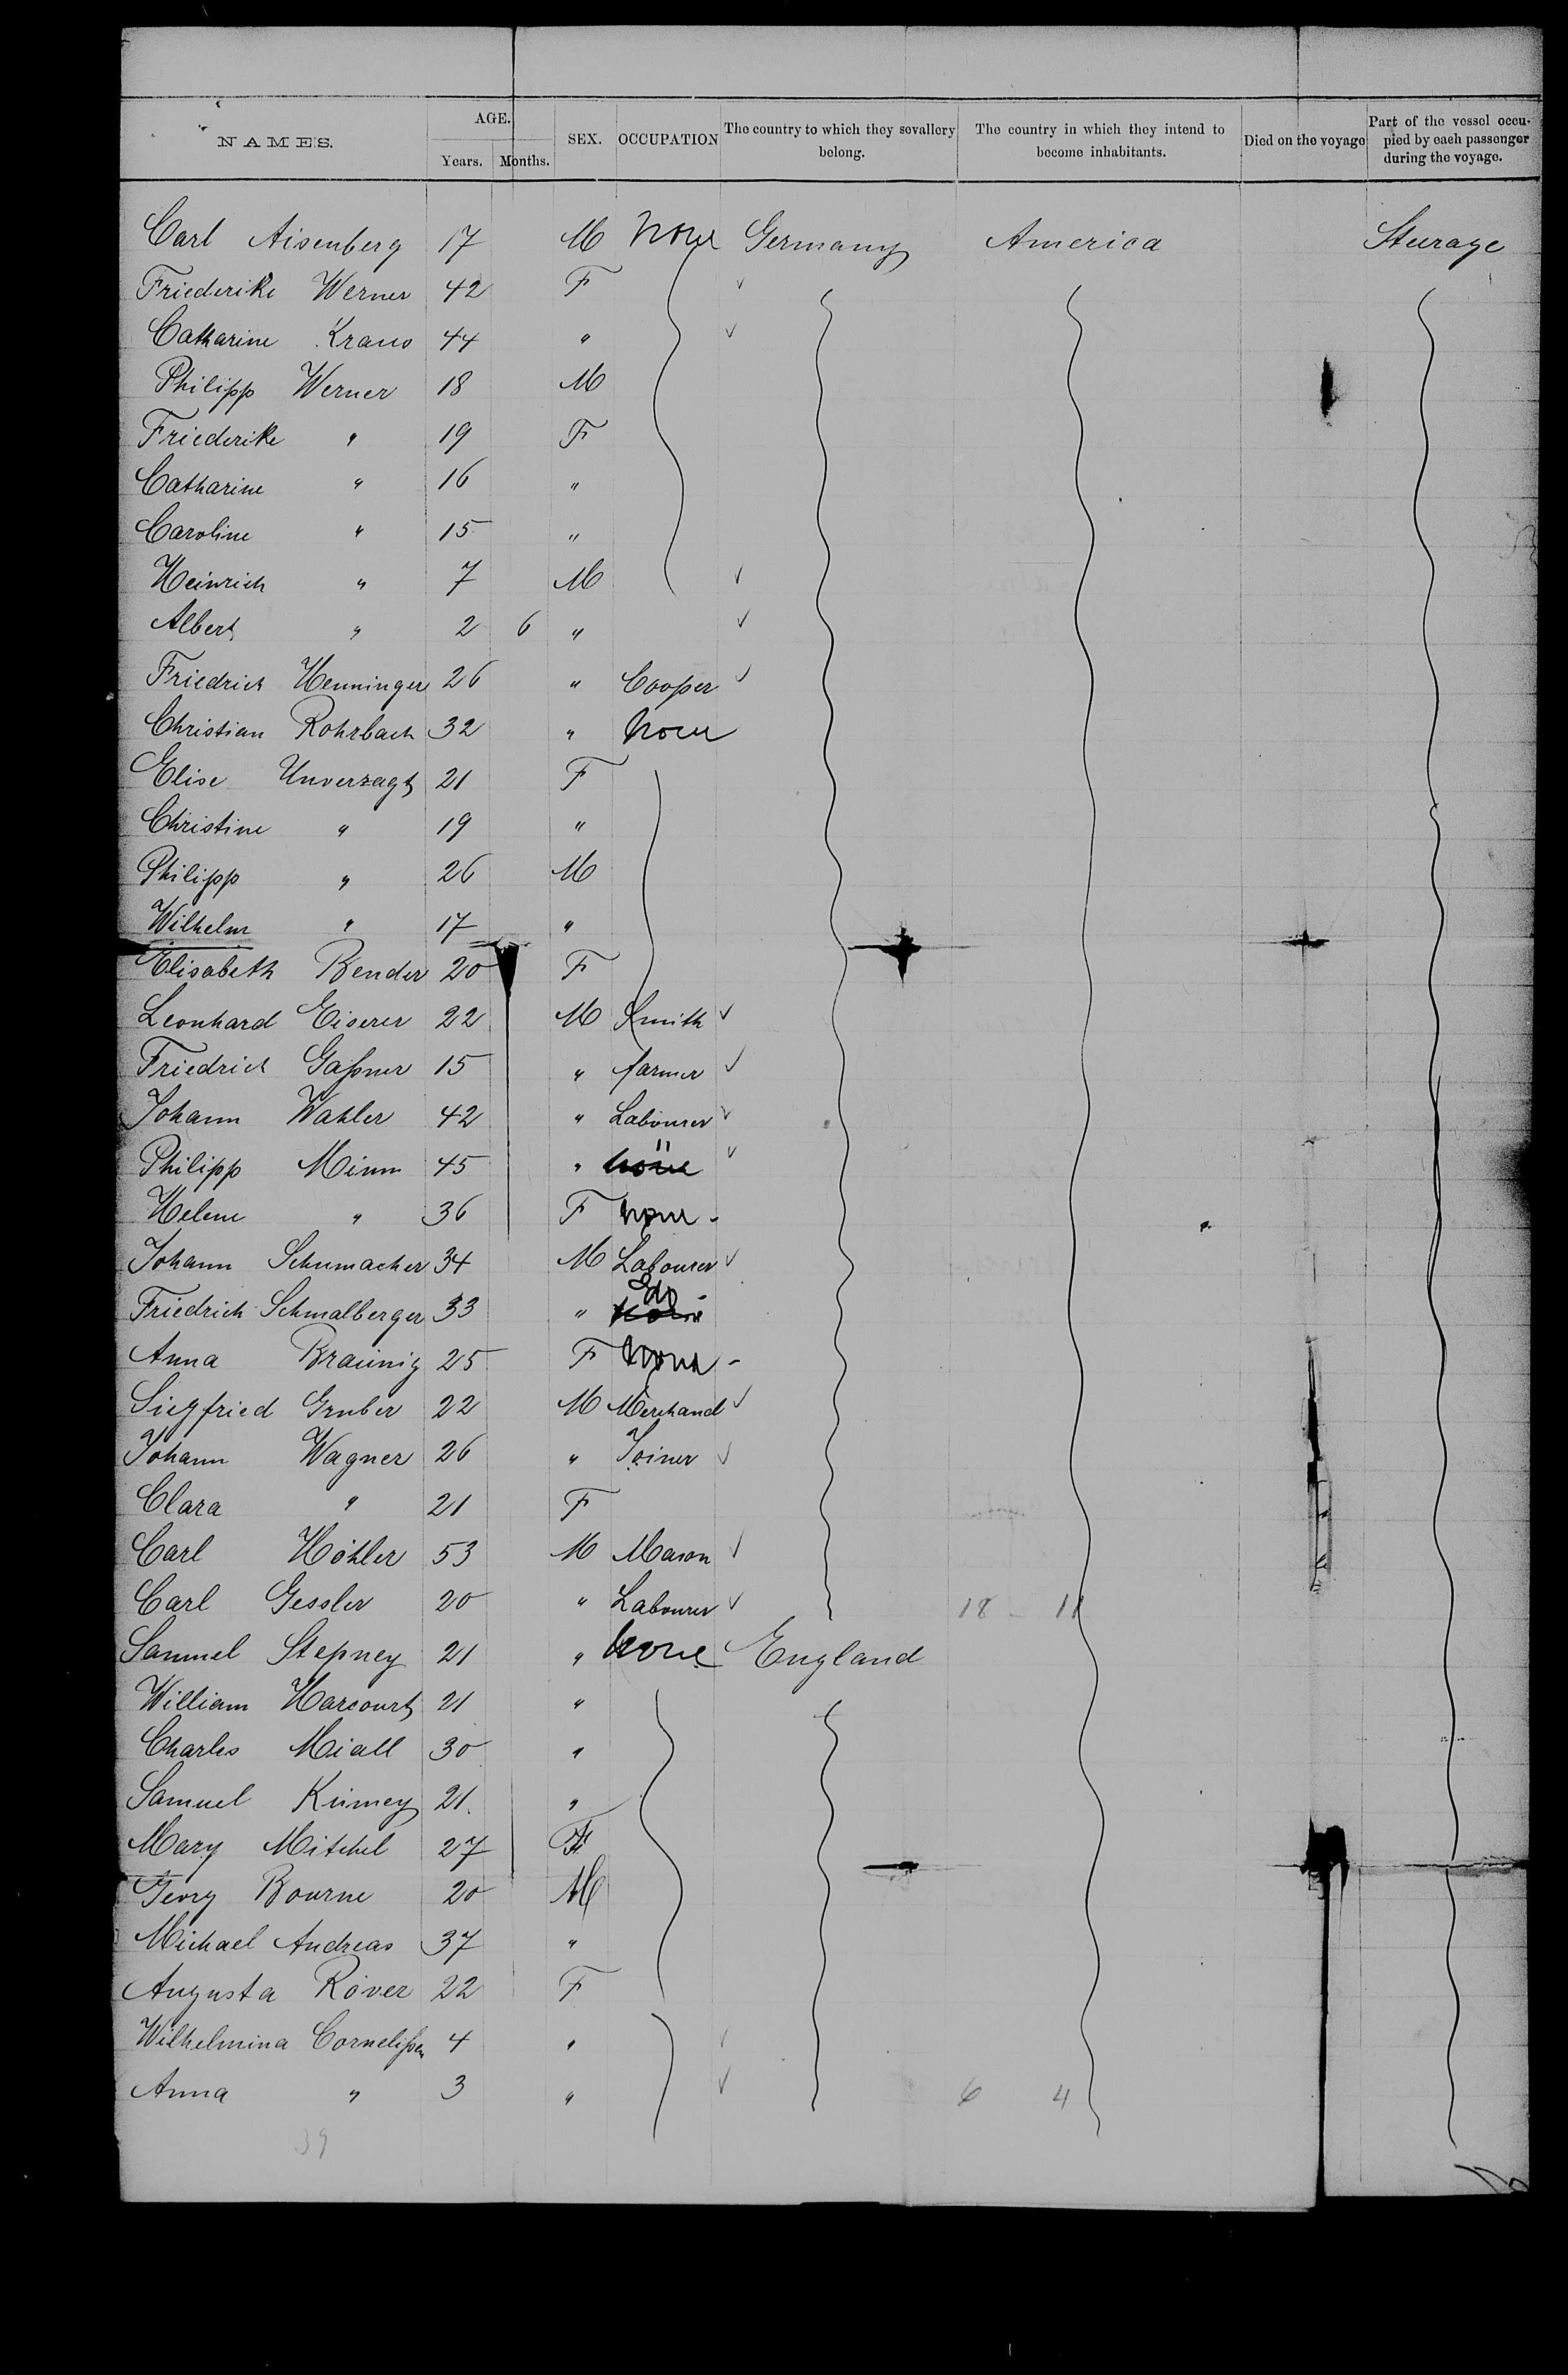 NAMES. AGE. Years. Months. SEX. OCCUPATION The country to which they sevallery belong. The country in which they intend to become inhabitants. Died on the voyage Part of the vessel occupied by each passenger during the voyage.
Carl Aisenberg 17 M None Germany America Steerage
Friederike Werner 42 F
Catharine Kraus 44 "
Philipp Werner 18 M
Friederike " 19 F
Catharine " 16 "
Caroline " 15 "
Heinrich " 7 M
Albert " 2 6 "
Friedrich Henninger 26 " Cooper
Christian Rohrbach 32 " None
Elise Unverzagt 21 F
Christine " 19 "
Philipp " 26 M
Wilhelm " 17 "
Elisabeth Bender 20 F
Leonhard Eiserer 22 M Smith
Friedrich Gaßner 15 " farmer
Johann Wahler 42 " Labourer
Philipp Minn 45 " "
Helene " 36 F None
Johann Schumacher 34 M Labourer
Friedrich Schmalberger 33 " do
Anna Braünig 25 F None
Siegfried Gruber 22 M Merchand
Johann Wagner 26 " Joiner
Clara " 21 F
Carl Höhler 53 M Mason
Carl Gessler 20 " Labourer 18 - 11
Samuel Stepney 21 " None England
William Harcourt 21 "
Charles Miall 30 "
Samuel Kinney 21 "
Mary Mitchel 27 F
Georg Bourne 20 M
Michael Andreas 37 "
Augusta Röver 22 F
Wilhelmina Cornelißen 4 "
Anna " 3 " 6 4
39